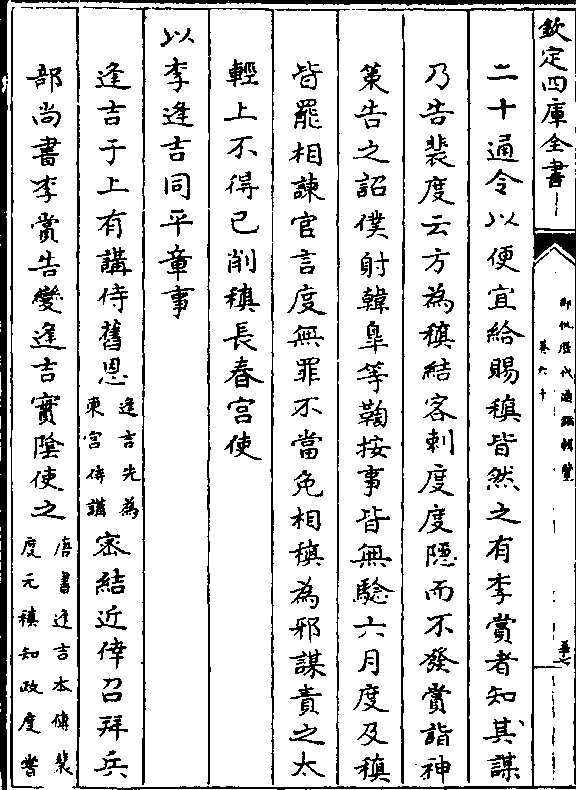 欽定四庫全書
御批歴代通鑑輯覽
卷六十
二十通令以便宜給賜稹皆然之有李賞者知其謀
乃告裴度云方為稹結客刺度度隱而不發賞詣神
策告之詔僕射韓臯等鞫按事皆無驗六月度及稹
皆罷相諫官言度無罪不當免相稹為邪謀責之太
輕上不得已削稹長春宮使
以李逢吉同平章事
逢吉于上有講侍舊恩逢吉先為
東宮侍講密結近倖召拜兵
部尚書李賞告變逢吉實陰使之唐書逢吉本傳裴
度元稹知政度嘗